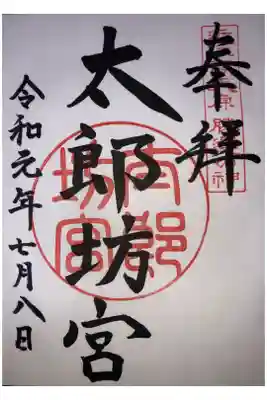 奉拝
太郎坊宮
太郎
坊宮
令和元年七月八日